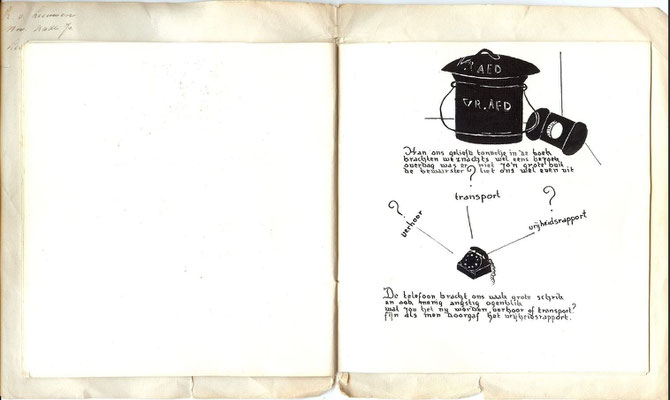 AED
VR.AED
Aan ons geliefd tonnetje in de hoek
brachten we 's nachts wel eens bezoek
overdag was er niet zo'n grote buit
de bewaarster liet ons wel even uit
?
transport
?
verhoor
?
vrijheidsrapport
De telefoon bracht ons vaak grote schrik
en ook menig angstig ogenblik
wat zou het nu worden verhoor of transport?
fijn als men doorgaf het vrijheidsrapport.